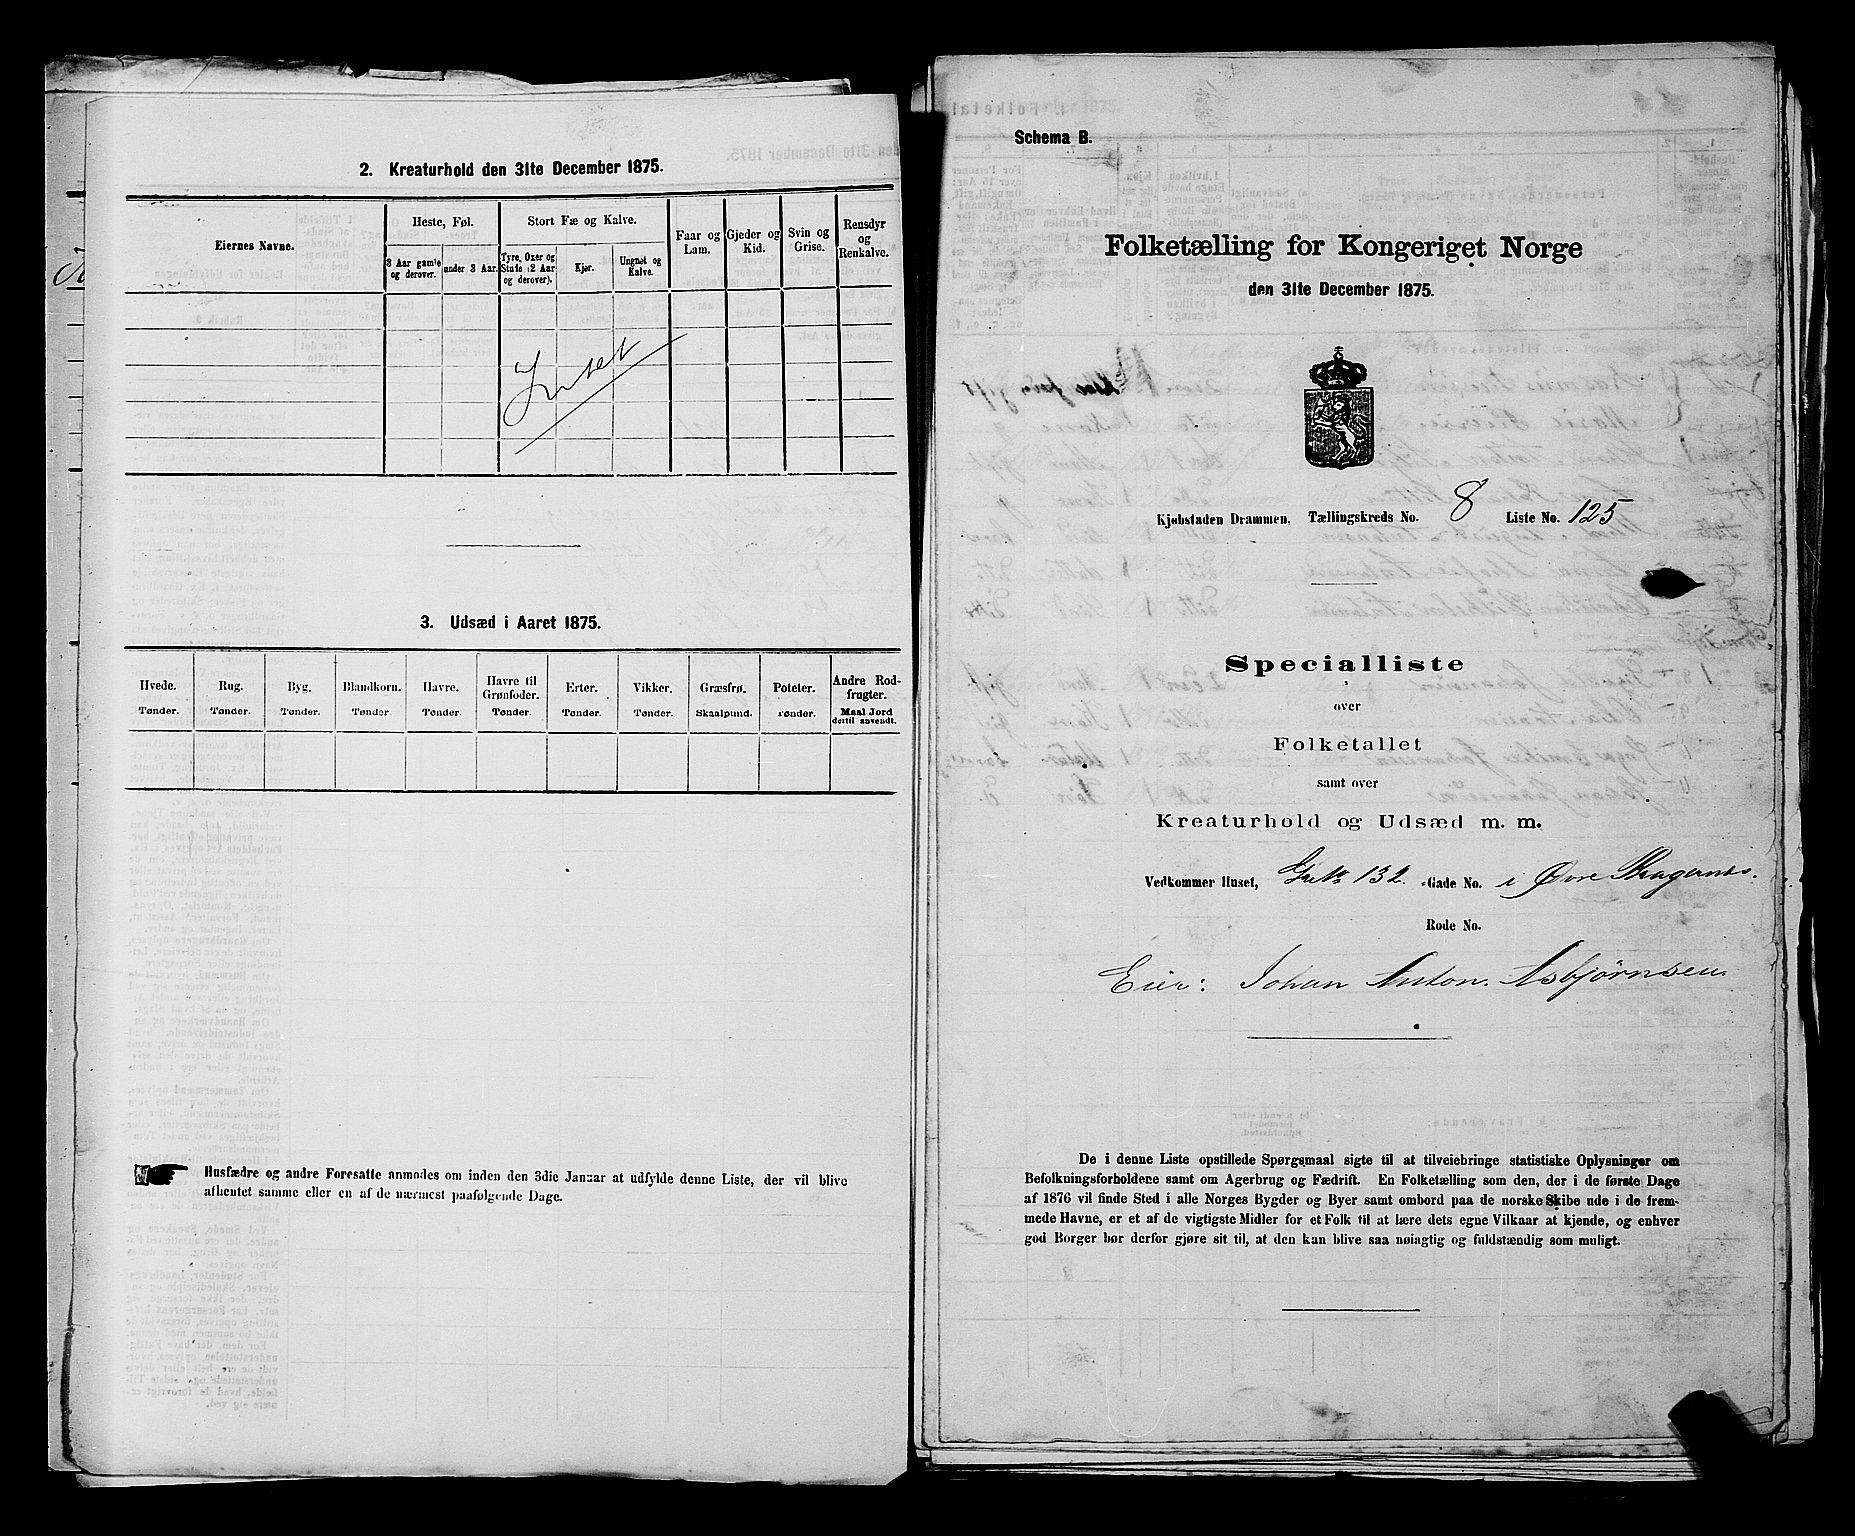 2. Kreaturhold den 31te December 1875.
Eiernes Navne.
Heste, Føl.
3 Aar gamle og derover.
under 3 Aar.
Stort Fæ og Kalve.
Tyre, Oxer og Stude (2 Aar og derover).
Kjør.
Ungnøt og Kalve.
Faar og Lam.
Gjeder og Kid.
Svin og Grise.
Rensdyr og Renkalve.
Intet
3. Udsæd i Aaret 1875.
Hvede. Tønder.
Rug. Tønder.
Byg. Tønder.
Blandkorn. Tønder.
Havre. Tønder.
Havre til Grønfoder. Tønder.
Erter. Tønder.
Vikker. Tønder.
Græsfrø. Skaalpund.
Poteter. Tønder.
Andre Rodfrugter. Maal Jord dertil anvendt.
Husfædre og andre Foresatte anmodes om inden den 3die Januar at udfylde denne Liste, der vil blive
afhentet samme eller en af de nærmest paafølgende Dage.
Schema B.
Folketælling for Kongeriget Norge
den 31te December 1875.
Kjøbstaden Drammen, Tællingskreds No. 8 Liste No. 125
Specialliste
over
Folketallet
samt over
Kreaturhold og Udsæd m. m.
Vedkommer Huset, 132. Gade No. i Øvre Bragernes.
Rode No.
Eier: Johan Anton Asbjørnsen
De i denne Liste opstillede Spørgsmaal sigte til at tilveiebringe statistiske Oplysninger om
Befolkningsforholdene samt om Agerbrug og Fædrift. En Folketælling som den, der i de første Dage
af 1876 vil finde Sted i alle Norges Bygder og Byer samt ombord paa de norske Skibe ude i de frem-
mede Havne, er et af de vigtigste Midler for et Folk til at lære dets egne Vilkaar at kjende, og enhver
god Borger bør derfor gjøre sit til, at den kan blive saa nøiagtig og fuldstændig som muligt.